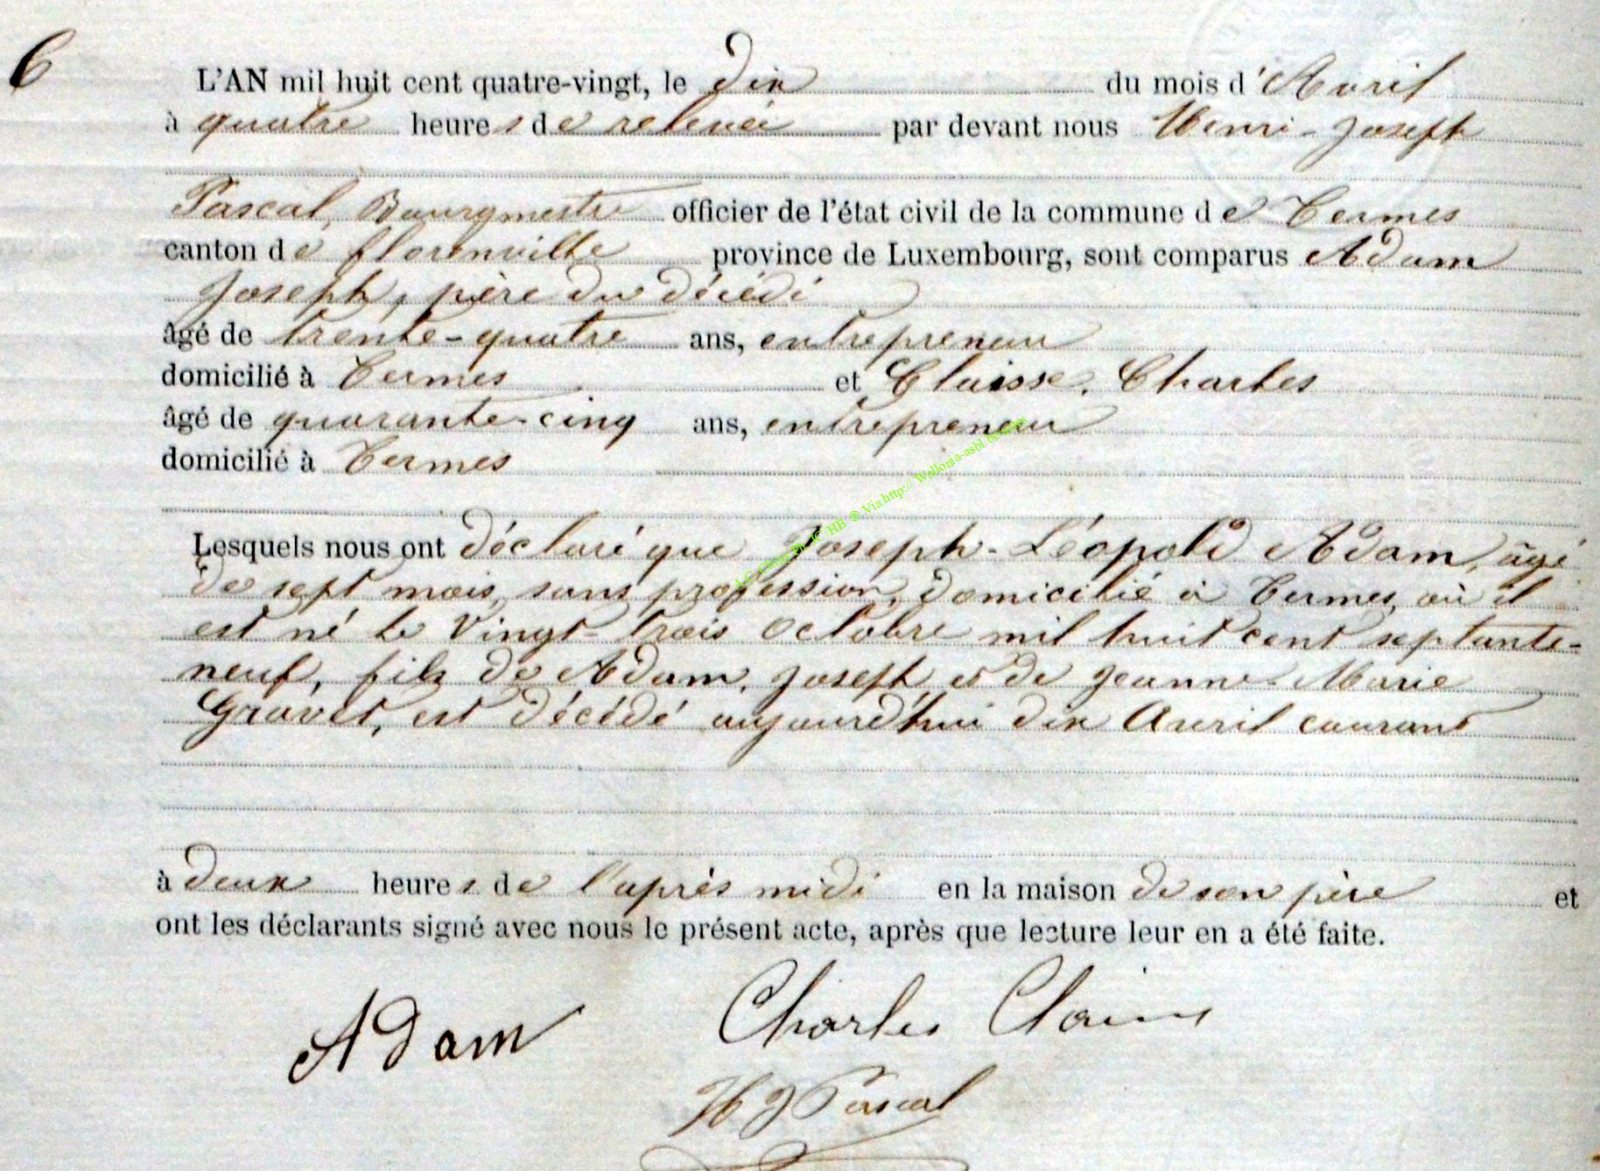 6
L'AN mil huit cent quatre-vingt, le dix du mois d'Avril
à quatre heures de relevée par devant nous Henri-Joseph
Pascal, Bourgmestre officier de l'état civil de la commune de Termes
canton de florenville province de Luxembourg, sont comparus Adam
Joseph, père du décédé
âgé de trente-quatre ans, entrepreneur
domicilié à Termes et Claisse, Charles
âgé de quarante-cinq ans, entrepreneur
domicilié à Termes
Lesquels nous ont déclaré que Joseph-Léopold Adam, âgé
de sept mois, sans profession, domicilié à Termes, où il
est né le Vingt-trois Octobre mil huit cent septante-
neuf, fils de Adam, Joseph et de Jeanne-Marie
Gravet, est décédé aujourd'hui dix Avril courant
à deux heures de l'après midi en la maison de son père et
ont les déclarants signé avec nous le présent acte, après que lecture leur en a été faite.
Adam Charles Claisse
HJ Pascal